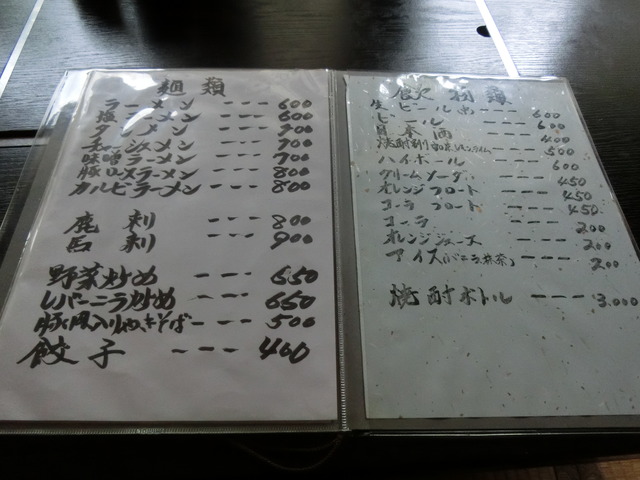 麺類
ラーメン --- 600
塩ラーメン --- 600
タンメン --- 700
チャーシューメン --- 900
味噌ラーメン --- 700
豚ロースラーメン --- 800
カルビラーメン --- 800
鹿刺 --- 800
馬刺 --- 900
野菜炒め --- 650
レバーニラ炒め --- 650
焼そば --- 500
餃子 --- 400
飲物類
生ビール 中 --- 600
ビール --- 600
日本酒 --- 400
焼酎割り --- 500
ハイボール --- 600
クリームソーダ --- 450
オレンジフロート --- 450
コーラフロート --- 450
コーラ --- 200
オレンジジュース --- 200
アイス(バニラ、抹茶) --- 200
焼酎ボトル --- 3,000